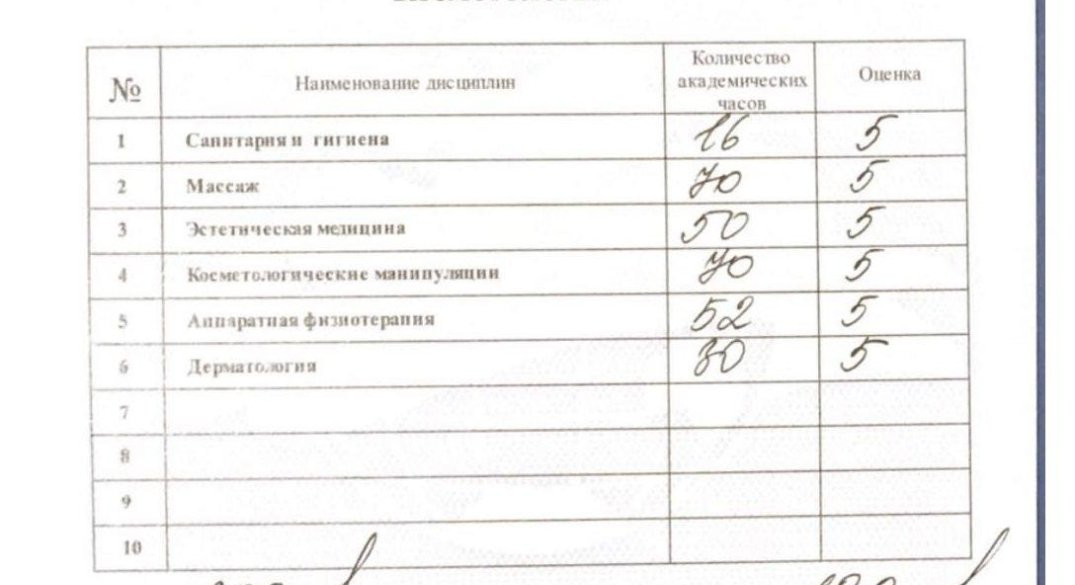 № Наименование дисциплин Количество академических часов Оценка
1 Санитария и гигиена 16 5
2 Массаж 70 5
3 Эстетическая медицина 50 5
4 Косметологические манипуляции 70 5
5 Аппаратная физиотерапия 52 5
6 Дерматология 30 5
7
8
9
10